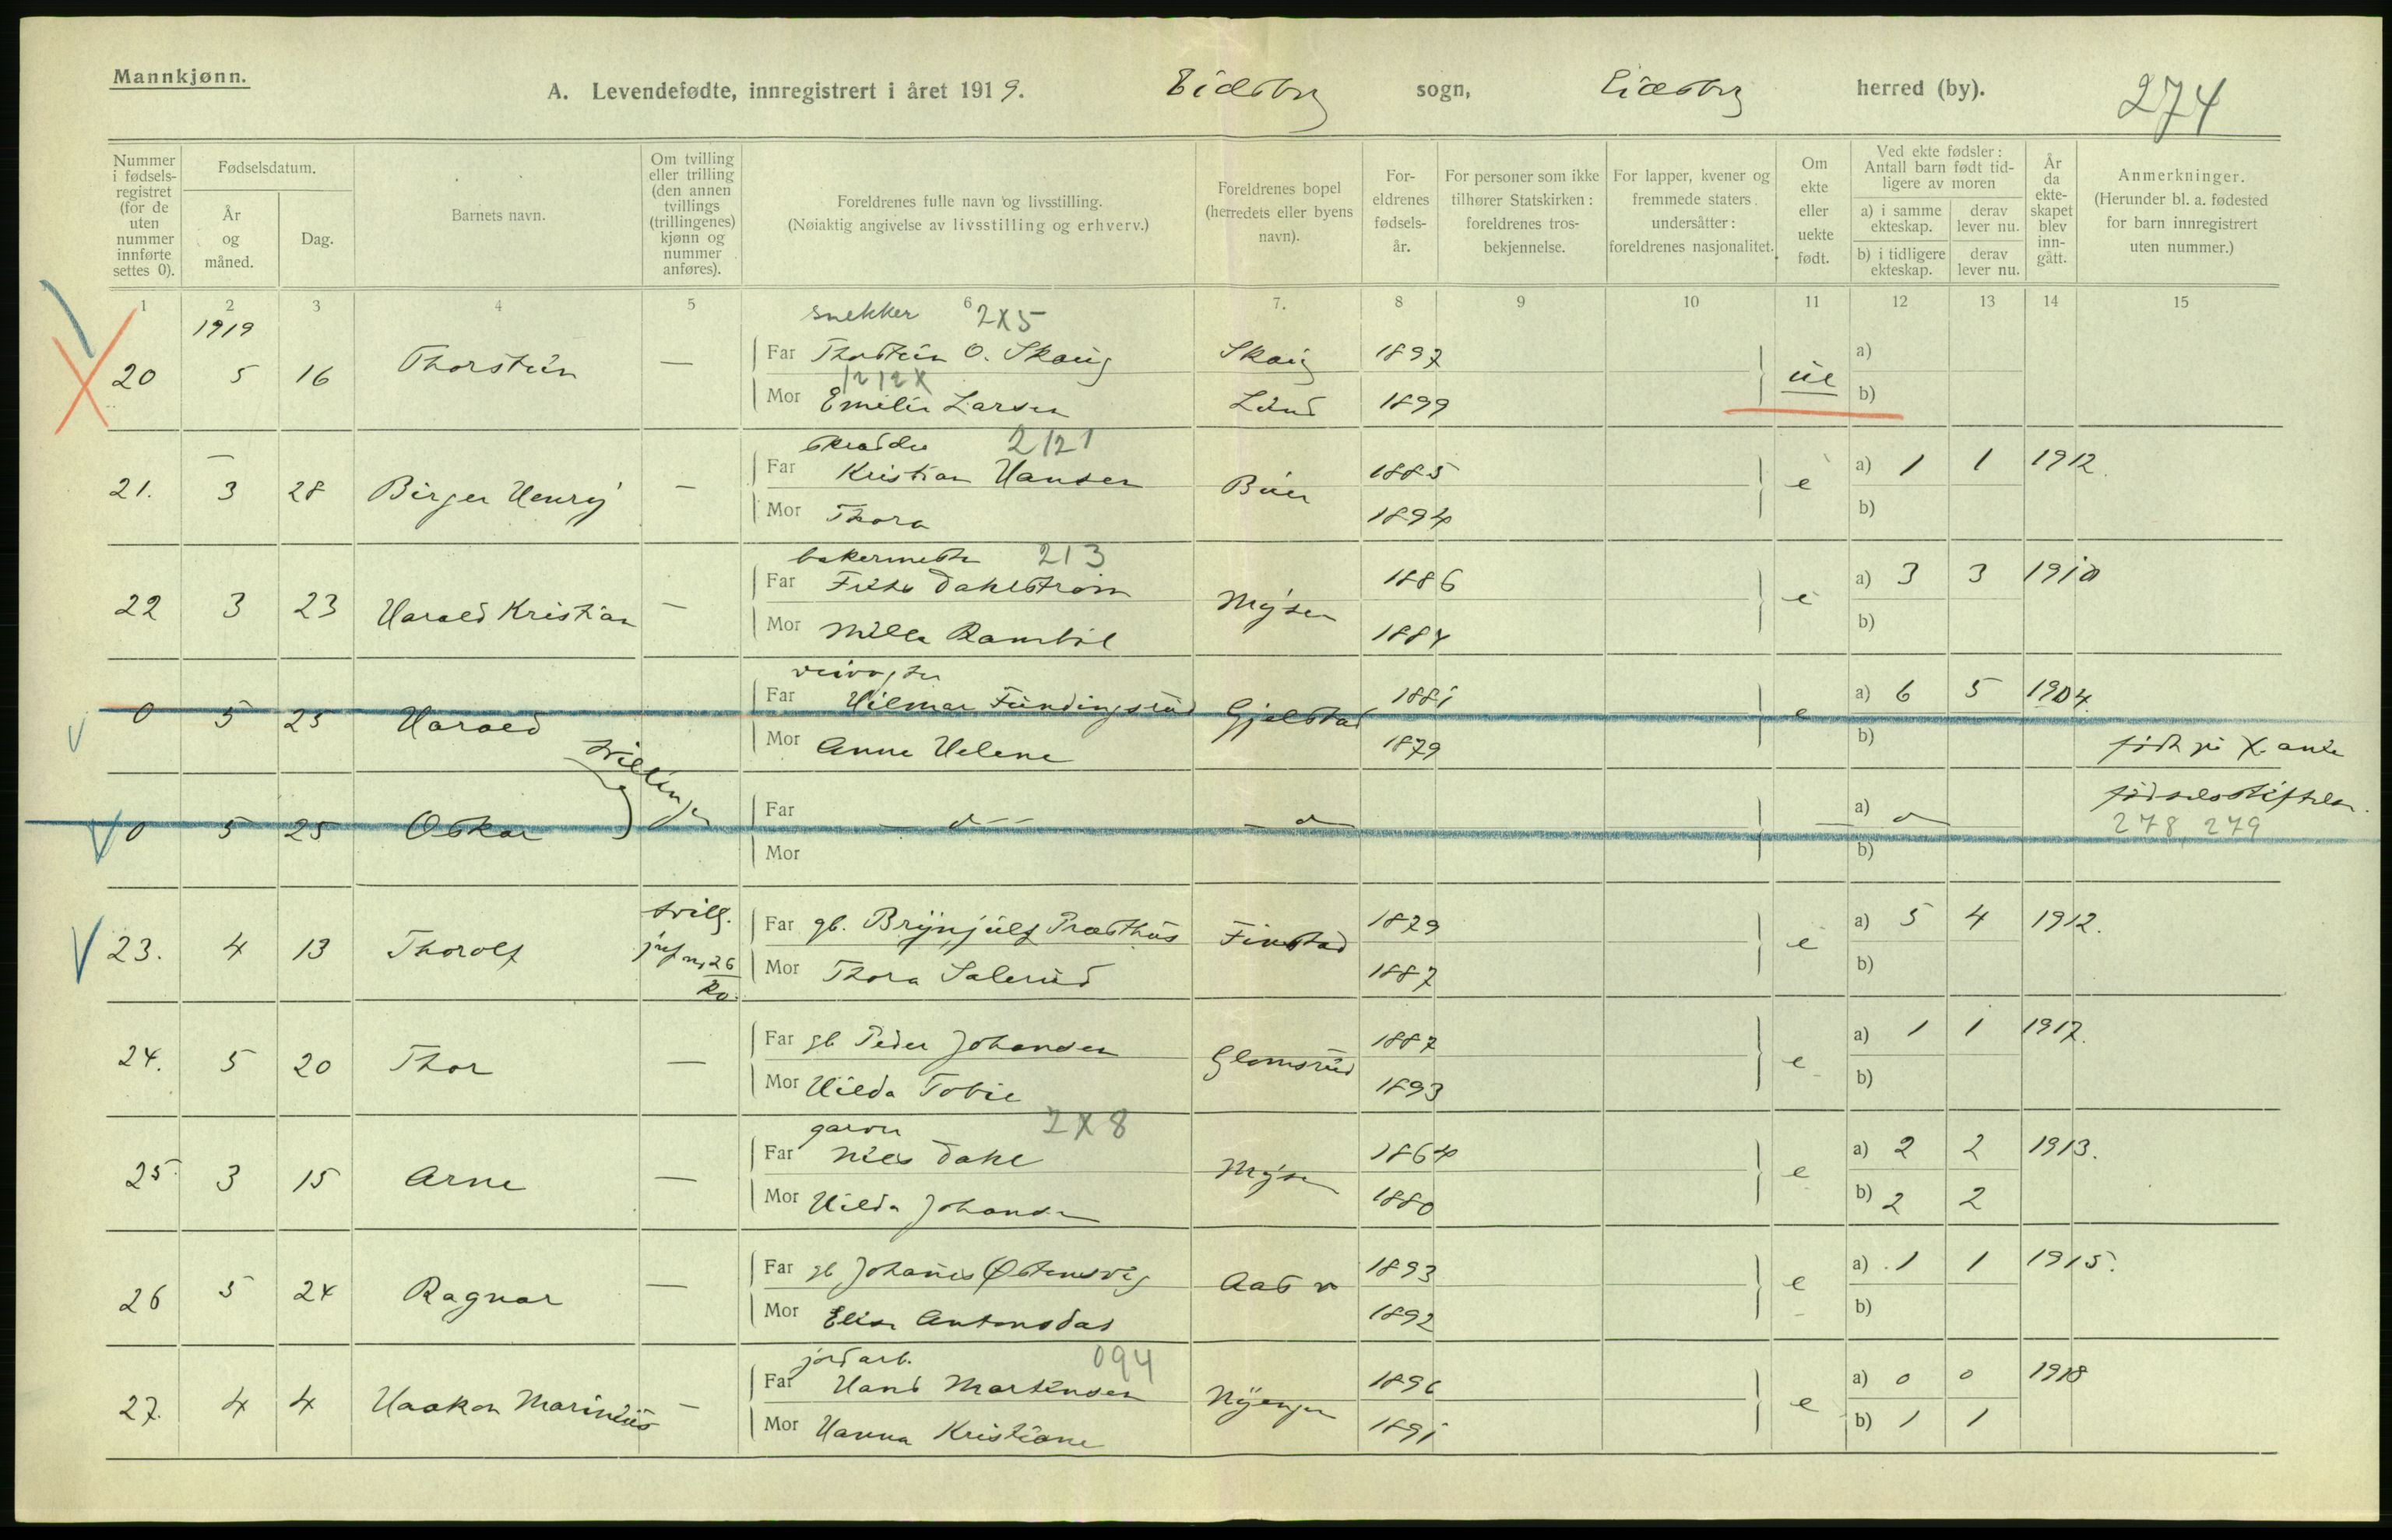 Mannkjønn.
A. Levendefødte, innregistrert i året 1919. Eidsbrg sogn, Eidsbrg herred (by). 274
Nummer i fødselsregistret (for de uten nummer innførte settes 0).
Fødselsdatum.
År og måned.
Dag.
Barnets navn.
Om tvilling eller trilling (den annen tvillings (trillingenes) kjønn og nummer anføres).
Foreldrenes fulle navn og livsstilling.
(Nøiaktig angivelse av livsstilling og erhverv.)
Foreldrenes bopel (herredets eller byens navn).
Foreldrenes fødselsår.
For personer som ikke tilhører Statskirken: foreldrenes trosbekjennelse.
For lapper, kvener og fremmede staters undersåtter: foreldrenes nasjonalitet.
Om ekte eller uekte født.
Ved ekte fødsler: Antall barn født tidligere av moren
a) i samme ekteskap. derav lever nu.
b) i tidligere ekteskap. derav lever nu.
År da ekteskapet blev inngått.
Anmerkninger.
(Herunder bl. a. fødested for barn innregistrert uten nummer.)
1 2 3 4 5 6 7. 8 9 10 11 12 13 14 15
1919
snekker 2X5
20 5 16 Thorstein — Far Thorstein O. Skaug Skaug 1897 ue a)
1212X
Mor Emilie Larsen Lund 1899 b)
skrædder 2121
21. 3 28 Birger Henry — Far Kristian Hansen Buer 1885 e a) 1 1 1912.
Mor Thora 1894 b)
bakermester 213
22 3 23 Harald Kristian — Far Fritz Dahlstrøm Mysen 1886 e a) 3 3 1910
Mor Milla Rambøl 1884 b)
veivogter
0 5 25 Harald Far Hilmar Fundingsrud Gjelstad 1881 e a) 6 5 1904.
Mor Anne Helene 1879 b) født på Kr. ania
tvillinger
0 5 25 Oskar Far — d — — d — a) — d — fødselsstiftelse.
278, 279
Mor b)
23. 4 13 Thorolf tvill. jvf nr 26 Kv. Far gb. Brynjulf Præsthus Finstad 1879 e a) 5 4 1912.
Mor Thora Salerud 1887 b)
24. 5 20 Thor — Far gb Peder Johansen Glomsrud 1887 e a) 1 1 1917.
Mor Hilda Tobie 1893 b)
garver 2X8
25 3 15 Arne — Far Nils Dahl Mysen 1864 e a) 2 2 1913.
Mor Hilda Johansen 1880 b) 2 2
26 5 24 Ragnar — Far gb Johanes Østensvig Aas 1893 e a) 1 1 1915.
Mor Elise Antonsdat 1892 b)
jordarb. 094
27. 4 4 Haakon Marinius — Far Hans Martinsen Nyengen 1896 e a) 0 0 1918
Mor Hanna Kristiane 1891 b) 1 1